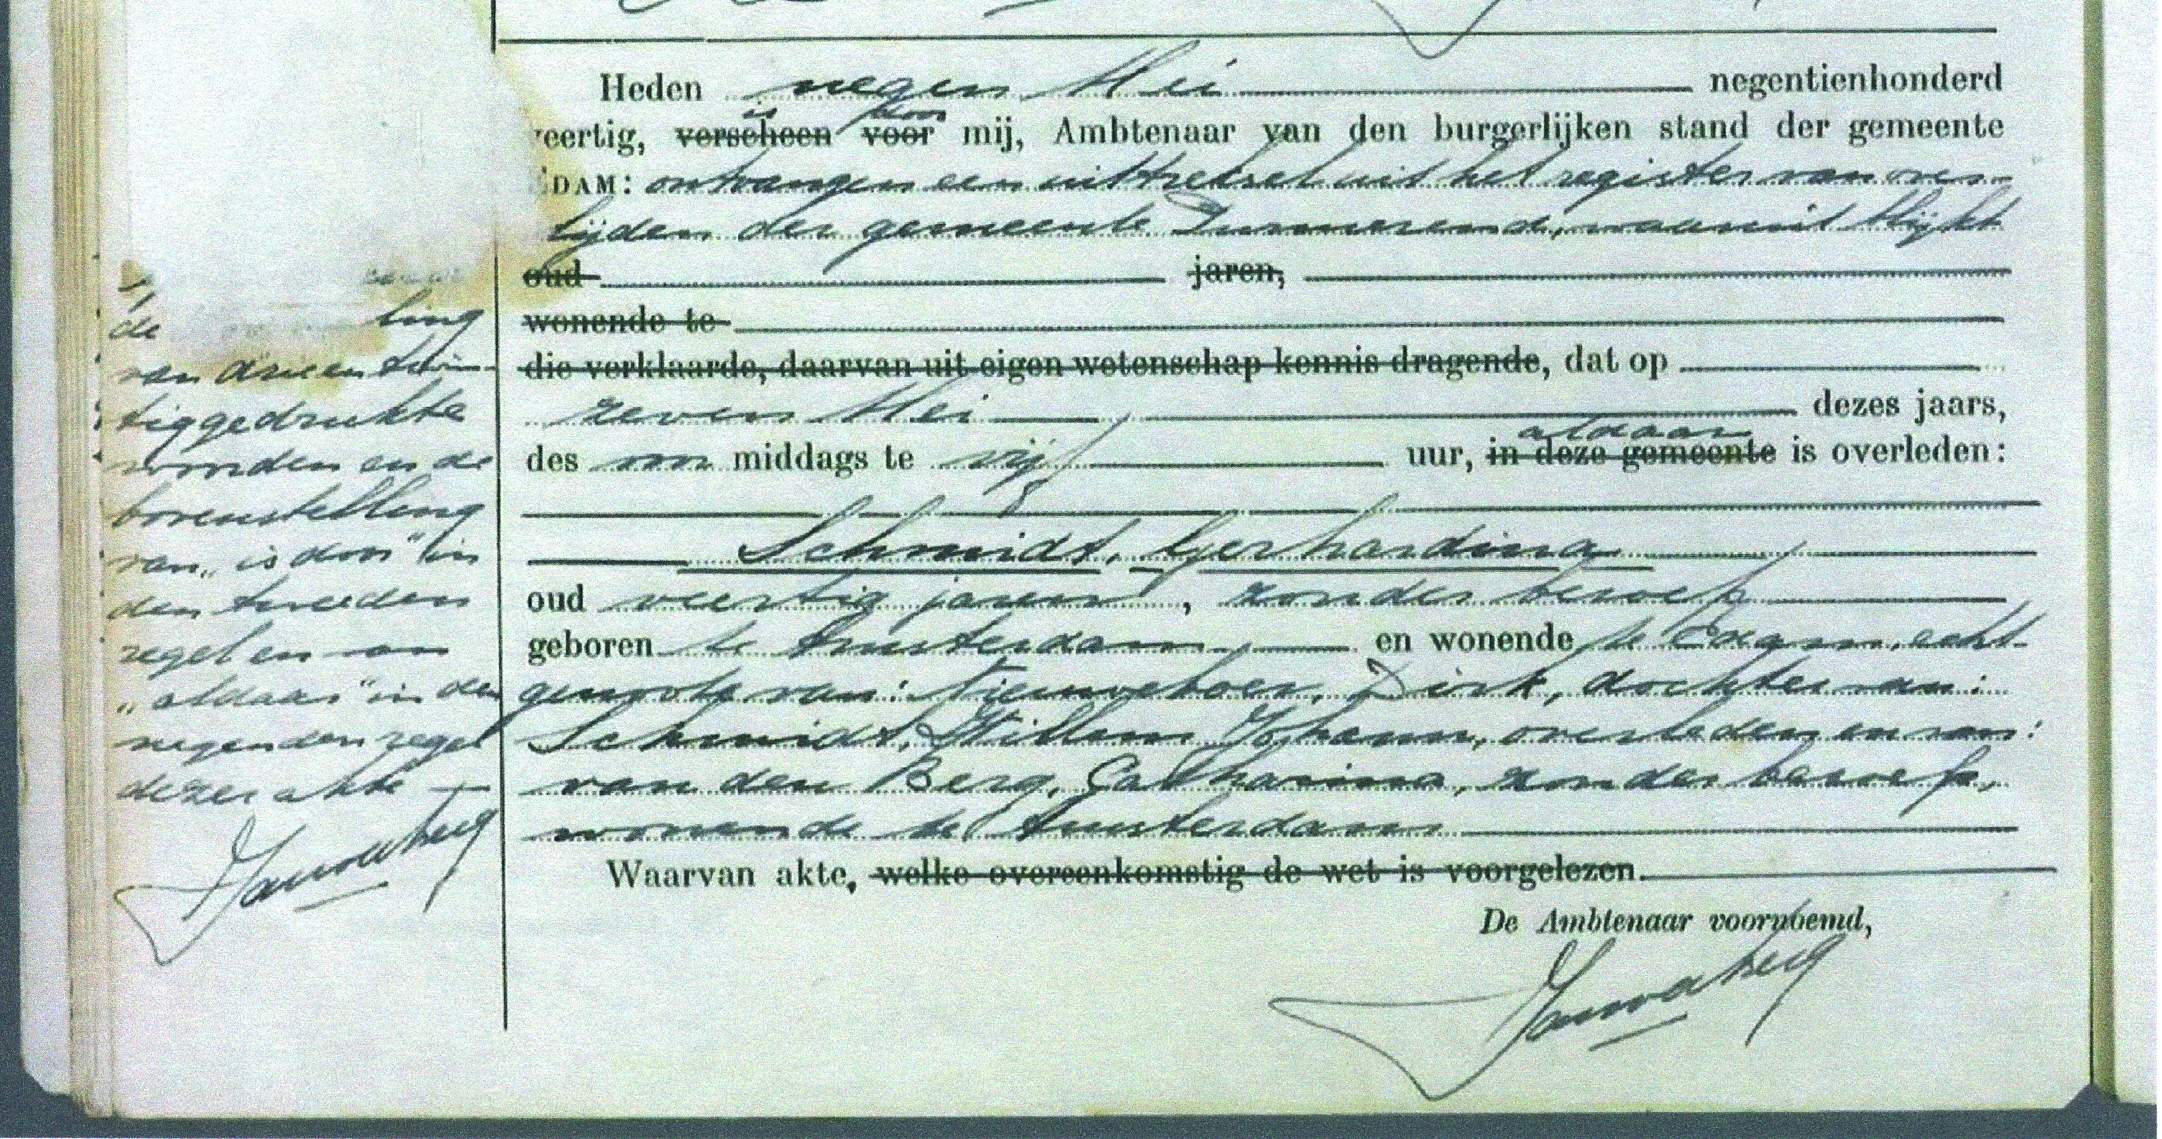 Heden negen Mei negentienhonderd
eertig, verscheen is voor door mij, Ambtenaar van den burgerlijken stand der gemeente
DAM: ontvangen een uittreksel uit het register van over-
lijden der gemeente Purmerend, waaruit blijkt
oud jaren,
wonende te
die verklaarde, daarvan uit eigen wetenschap kennis dragende, dat op
zeven Mei dezes jaars,
des voor middags te vijf uur, in deze gemeente aldaar is overleden:
Schmidt, Gerhardina
oud veertig jaren, zonder beroep
geboren te Amsterdam en wonende te Edam, echt-
genoote van: Nieuweboer, Dirk, dochter van:
Schmidt, Willem Johann, overleden en van:
van den Berg, Catharina, zonder beroep,
wonende te Amsterdam
Waarvan akte, welke overeenkomstig de wet is voorgelezen.
De Ambtenaar voornoemd,
de ling
van drieentwin-
tig gedrukte
woorden en de
bovenstelling
van "is door" in
den tweeden
regel en van
"aldaar" in den
negenden regel
dezer akte